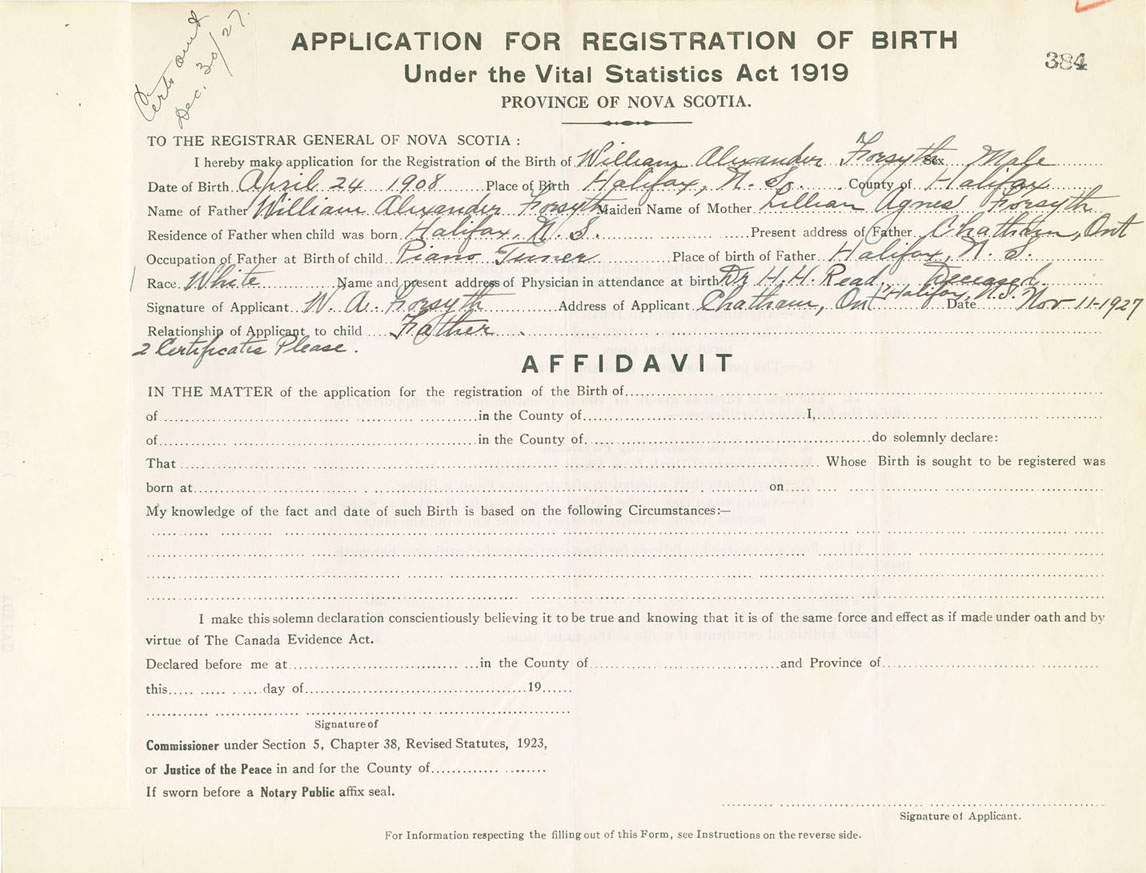 Certs out
Dec. 30/27.
APPLICATION FOR REGISTRATION OF BIRTH
Under the Vital Statistics Act 1919
384
PROVINCE OF NOVA SCOTIA.
TO THE REGISTRAR GENERAL OF NOVA SCOTIA :
I hereby make application for the Registration of the Birth of William Alexander Forsyth Sex Male
Date of Birth April 24 1908 Place of Birth Halifax, N. S. County of Halifax
Name of Father William Alexander Forsyth Maiden Name of Mother Lillian Agnes Forsyth
Residence of Father when child was born Halifax, N. S. Present address of Father Chatham, Ont
Occupation of Father at Birth of child Piano Tuner Place of birth of Father Halifax, N. S.
Race White Name and present address of Physician in attendance at birth Dr H. H. Read, Deceased
Halifax, N.S.
Signature of Applicant W. A. Forsyth Address of Applicant Chatham, Ont Date Nov-11-1927
Relationship of Applicant to child Father
2 Certificates Please.
AFFIDAVIT
IN THE MATTER of the application for the registration of the Birth of
of in the County of I,
of in the County of do solemnly declare:
That Whose Birth is sought to be registered was
born at on
My knowledge of the fact and date of such Birth is based on the following Circumstances:—
I make this solemn declaration conscientiously believing it to be true and knowing that it is of the same force and effect as if made under oath and by
virtue of The Canada Evidence Act.
Declared before me at in the County of and Province of
this day of 19
Signature of
Commissioner under Section 5, Chapter 38, Revised Statutes, 1923,
or Justice of the Peace in and for the County of
If sworn before a Notary Public affix seal.
Signature of Applicant.
For Information respecting the filling out of this Form, see Instructions on the reverse side.